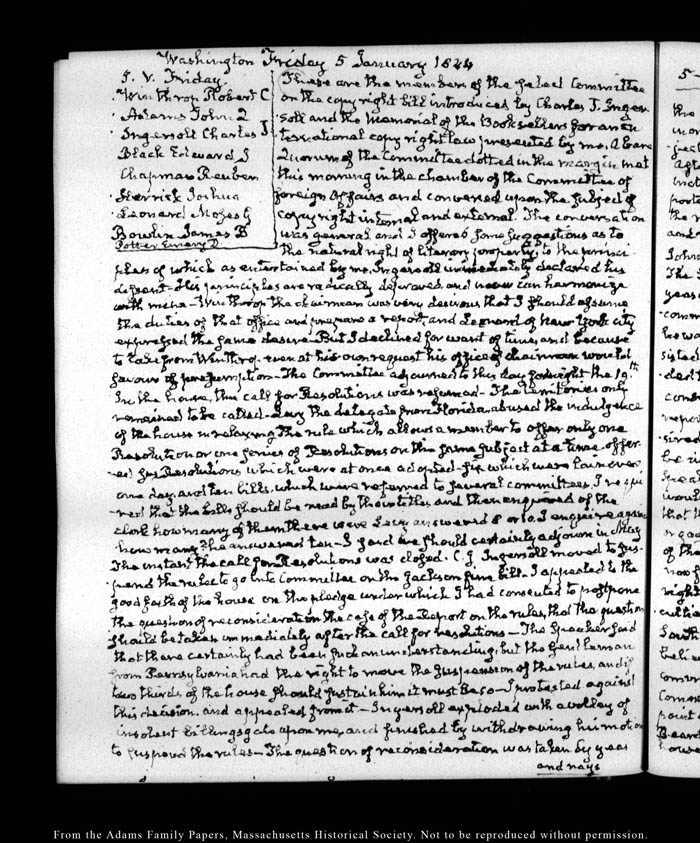 Washington Friday 5 January 1844
5. V. Friday.
Winthrop Robert C
Adams John Q
Ingersoll Charles J
Black Edward J
Chapman Reuben
Herrick Joshua
Leonard Moses G
Bowlin James B
Potter Emery D.
These are the members of the select Committee
on the copy right bill introduced by Charles J. Inger-
soll and the Memorial of the Booksellers for an in-
ternational copy right law presented by me. A bare
Quorum of the Committee dotted in the margin met
this morning in the chamber of the Committee of
foreign Affairs and conversed upon the subject of
copy right internal and external. The conversation
was general and I offered some suggestions as to
the natural right of literary property, to the princi-
ples of which as entertained by me, Ingersoll immediately declared his
dissent— His principles are radically depraved, and never can harmonize
with mine— Winthrop the chairman was very desirous that I should assume
the duties of that office and prepare a report, and Leonard of New York city
expressed the same desire— But I declined for want of time, and because
to take from Winthrop even at his own request his office of chairman would
savour of presumption— The Committee adjourned to this day fortnight the 19th.
In the house, the call for Resolutions was resumed— The territories only
remained to be called— Levy the delegate from Florida abused the indulgence
of the house in relaxing the rule which allows a member to offer only one
Resolution or one series of Resolutions on the same subject at a time— offer-
ed Resolutions which were at once adopted— six which were laid over
one day, and ten bills, which were referred to several committees. I requi-
red that the bills should be read by their titles, and then enquired of the
clerk how many of them there were Levy answered 8 or 10. I enquire again
how many? he answered ten— I said we should certainly adjourn in May
The instant the call for Resolutions was closed. C. J. Ingersoll moved to sus-
pend the rules to go into Committee on the Jackson fine bill— I appealed to the
good faith of the house on the pledge under which I had consented to postpone
the question of reconsideration the case of the Report on the rules, that the question
should be taken immediately after the call for resolutions— The Speaker said
that there certainly had been such an understanding, but the gentleman
from Pennsylvania had the right to move the suspension of the rules, and if
two thirds of the house should sustain him it must be so— I protested against
this decision, and appealed from it— Ingersoll exploded with a volley of
insolent billingsgate upon me, and finished by withdrawing his motion
to suspend the rules— The question of reconsideration was taken by yeas
and nays
From the Adams Family Papers, Massachusetts Historical Society. Not to be reproduced without permission.